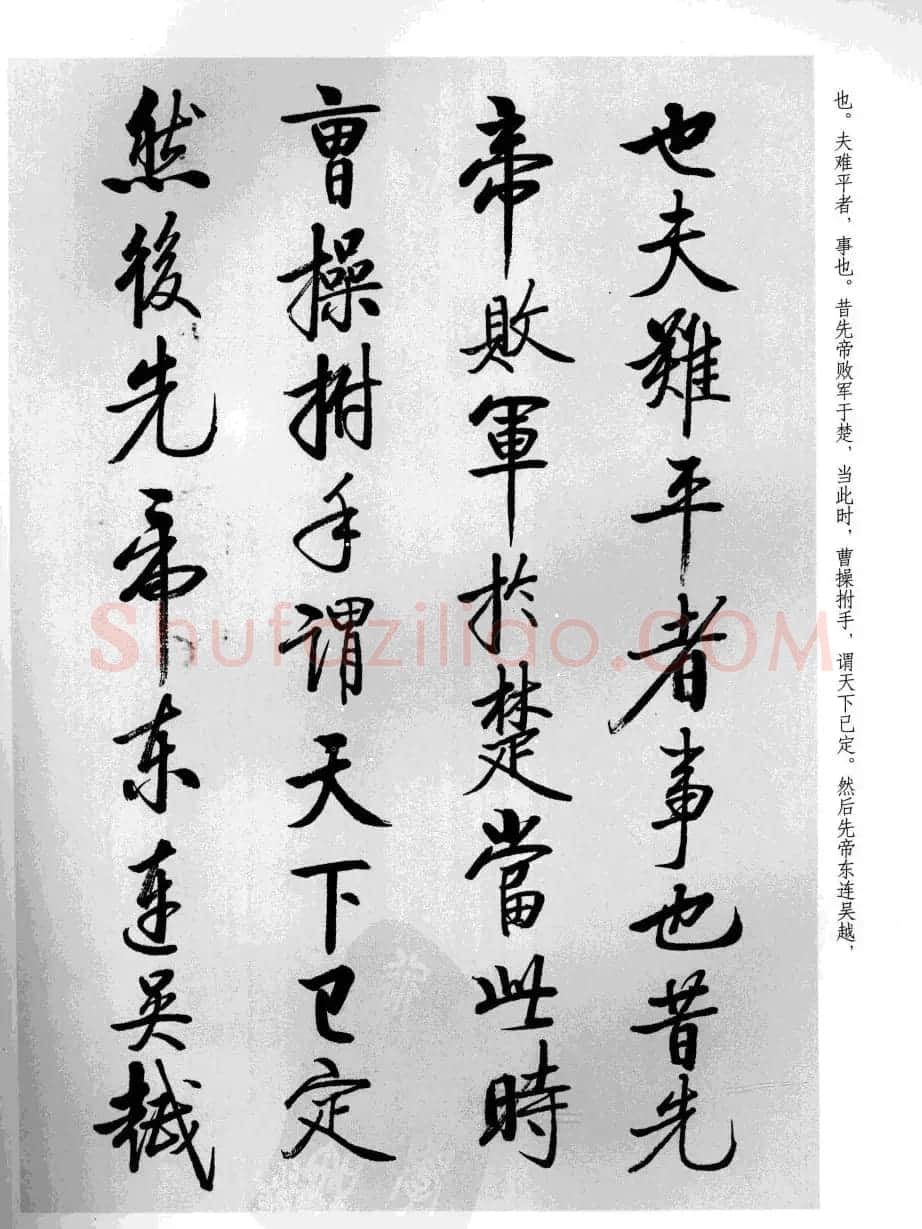 也。夫难平者，事也。昔先帝败军于楚，当此时，曹操拊手，谓天下已定。然后先帝东连吴越，
也夫難平者事也昔先
帝敗軍於楚當此時
曹操拊手謂天下已定
然後先帝东連吴越
Shufaziliao.COM